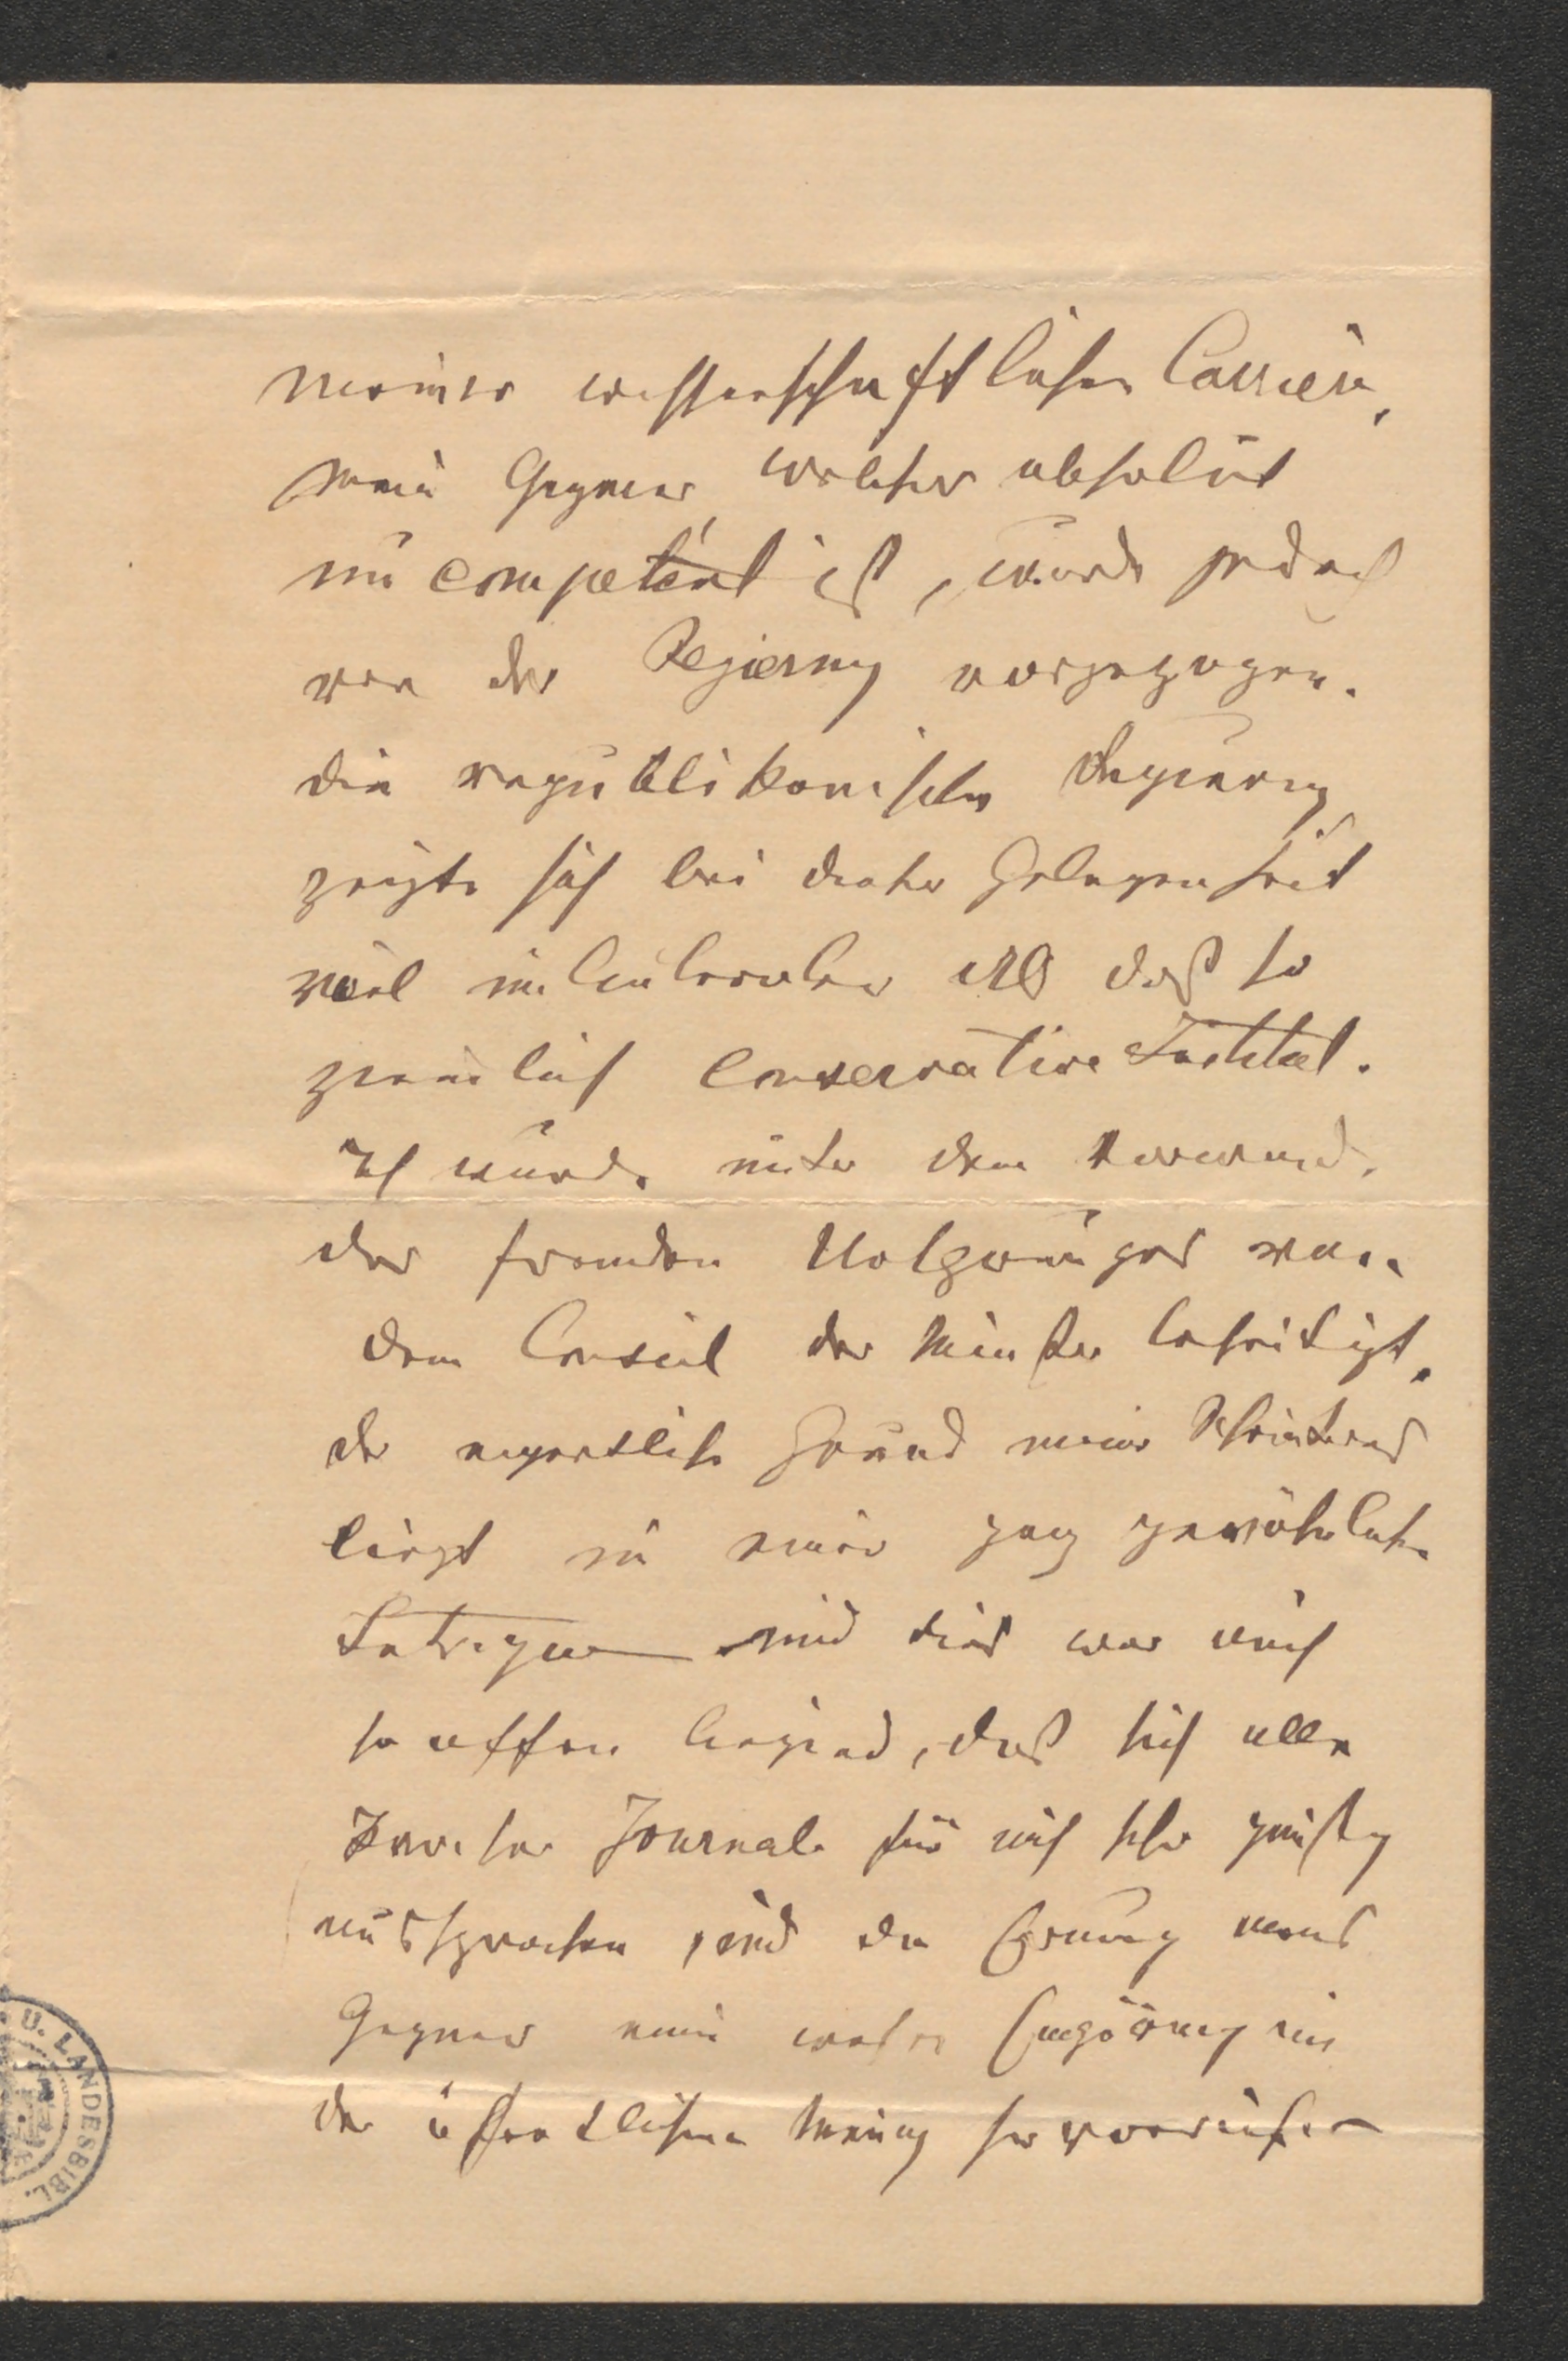 meiner wissenschaftlichen Carriere,
mein Gegner, welcher absolut
incompetent ist, wurde jedoch
von der Regierung vorgezogen.
die republikanische Regierung
zeigte sich bei dieser Gelegenheit
viel illiberaler als das so
ziemlich conservative Institut.
Ich wurde unter dem Vorwand
der fremden
dem Conseil der Minister beseitigt,
der eigentliche Grund meines Scheiterns
liegt in einer ganz gewöhnlichen
Intrigue und dies war auch
so offen liegend, daß sich alle
Pariser Journale für mich sehr günstig
aussprachen, und die Ernennung meines
Gegners eine wahre Empörung in
der öffentlichen Meinung hervorrief
U. LANDESBIBL.